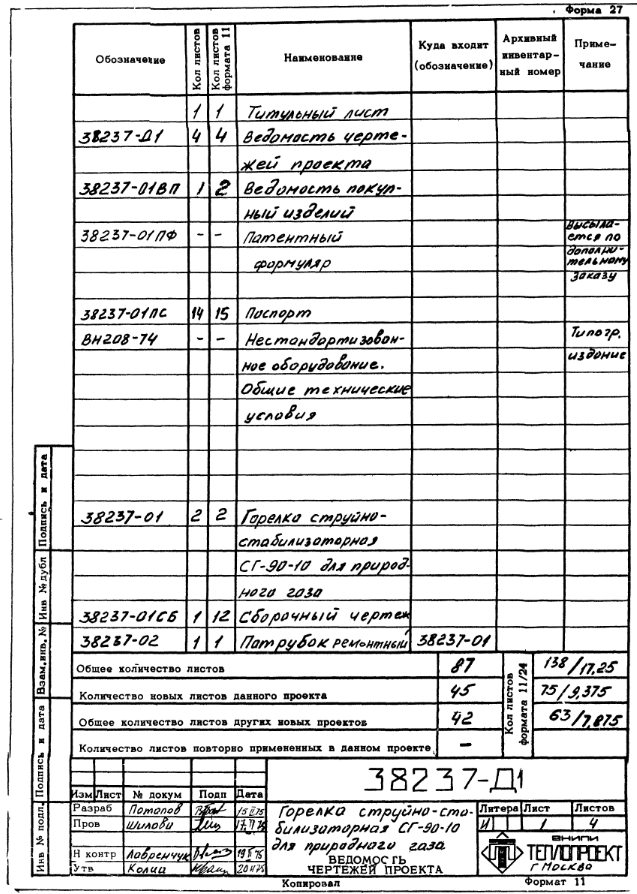 Форма 27
Обозначение
Кол листов
Кол листов формата 11
Наименование
Куда входит (обозначение)
Архивный инвентар- ный номер
Приме- чание
1 1 Титульный лист
38237-Д1 4 4 Ведомость черте-
жей проекта
38237-01ВП 1 2 Ведомость покуп-
ный изделий
38237-01ПФ - - Патентный
формуляр
Высыла-
ется по
дополни-
тельному
заказу
38237-01ПС 14 15 Паспорт
ВН208-74 - - Нестандартизован- Типогр.
ное оборудование. издание
Общие технические
условия
38237-01 2 2 Горелка струйно-
стабилизаторная
СГ-90-10 для природ-
ного газа
38237-01СБ 1 12 Сборочный чертеж
38237-02 1 1 Патрубок ремонтный 38237-01
Общее количество листов 87 138/17,25
Количество новых листов данного проекта 45 75/9,375
Общее количество листов других новых проектов 42 63/7,875
Количество листов повторно примененных в данном проекте –
Кол листов формата 11/24
38237-Д1
Изм Лист № докум Подп Дата
Разраб Потопов
Пров Шилова
Н контр Лавренчук
Утв Колиа
Горелка струйно-ста-
билизаторная СГ-90-10
для природного газа
ВЕДОМОСТЬ
ЧЕРТЕЖЕЙ ПРОЕКТА
Литера Лист Листов
И 1 4
ВНИПИ
ТЕПЛОПРОЕКТ
Г МОСКВА
Копировал
Формат 11
Инв № подл.
Подпись и дата
Взам.инв. №
Инв № дубл
Подпись и дата